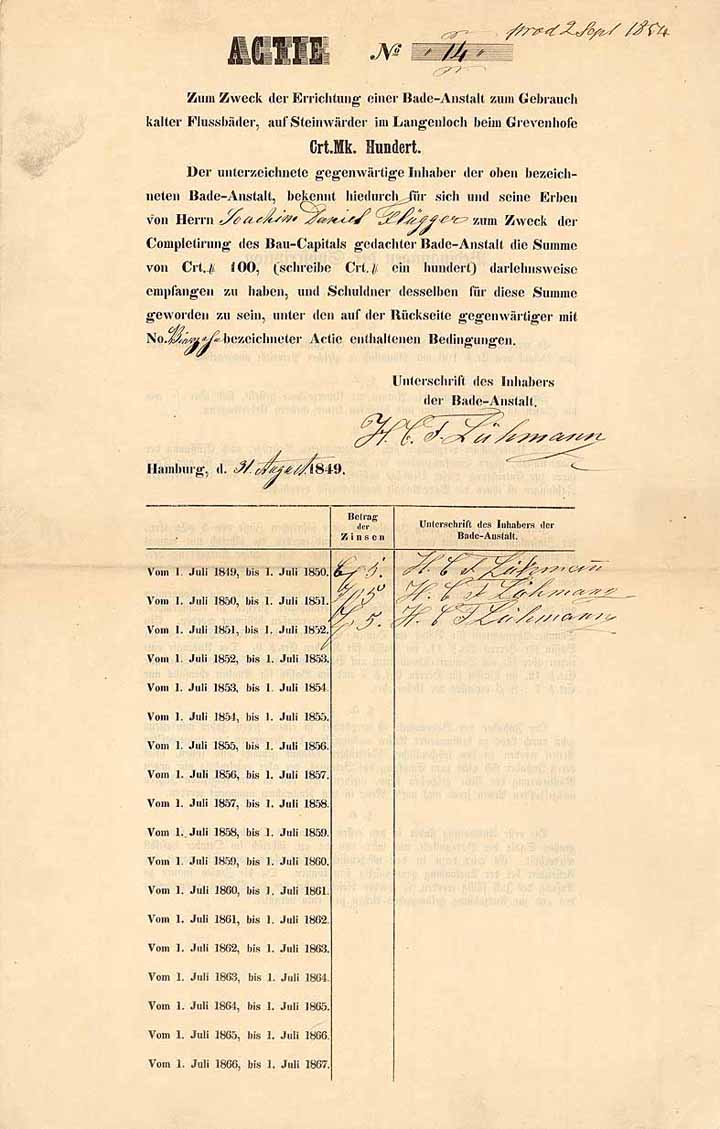 prod 2 Sept 1854
ACTIE No 14
Zum Zweck der Errichtung einer Bade-Anstalt zum Gebrauch
kalter Flussbäder, auf Steinwärder im Langenloch beim Grevenhofe
Crt.Mk. Hundert.
Der unterzeichnete gegenwärtige Inhaber der oben bezeich-
neten Bade-Anstalt, bekennt hiedurch für sich und seine Erben
von Herrn Joachim Daniel Flügger zum Zweck der
Completirung des Bau-Capitals gedachter Bade-Anstalt die Summe
von Crt.₰ 100, (schreibe Crt.₰ ein hundert) darlehnsweise
empfangen zu haben, und Schuldner desselben für diese Summe
geworden zu sein, unter den auf der Rückseite gegenwärtiger mit
No. bezeichneter Actie enthaltenen Bedingungen.
Unterschrift des Inhabers
der Bade-Anstalt.
H. C. F. Lühmann
Hamburg, d. 31 August 1849.
Betrag der Zinsen
Unterschrift des Inhabers der Bade-Anstalt.
Vom 1. Juli 1849, bis 1. Juli 1850. 5. H. C F Lühmann
Vom 1. Juli 1850, bis 1. Juli 1851. 5 H. C F Lühmann
Vom 1. Juli 1851, bis 1. Juli 1852. 5. H. C F Lühmann
Vom 1. Juli 1852, bis 1. Juli 1853.
Vom 1. Juli 1853, bis 1. Juli 1854.
Vom 1. Juli 1854, bis 1. Juli 1855.
Vom 1. Juli 1855, bis 1. Juli 1856.
Vom 1. Juli 1856, bis 1. Juli 1857.
Vom 1. Juli 1857, bis 1. Juli 1858.
Vom 1. Juli 1858, bis 1. Juli 1859.
Vom 1. Juli 1859, bis 1. Juli 1860.
Vom 1. Juli 1860, bis 1. Juli 1861.
Vom 1. Juli 1861, bis 1. Juli 1862.
Vom 1. Juli 1862, bis 1. Juli 1863.
Vom 1. Juli 1863, bis 1. Juli 1864.
Vom 1. Juli 1864, bis 1. Juli 1865.
Vom 1. Juli 1865, bis 1. Juli 1866.
Vom 1. Juli 1866, bis 1. Juli 1867.